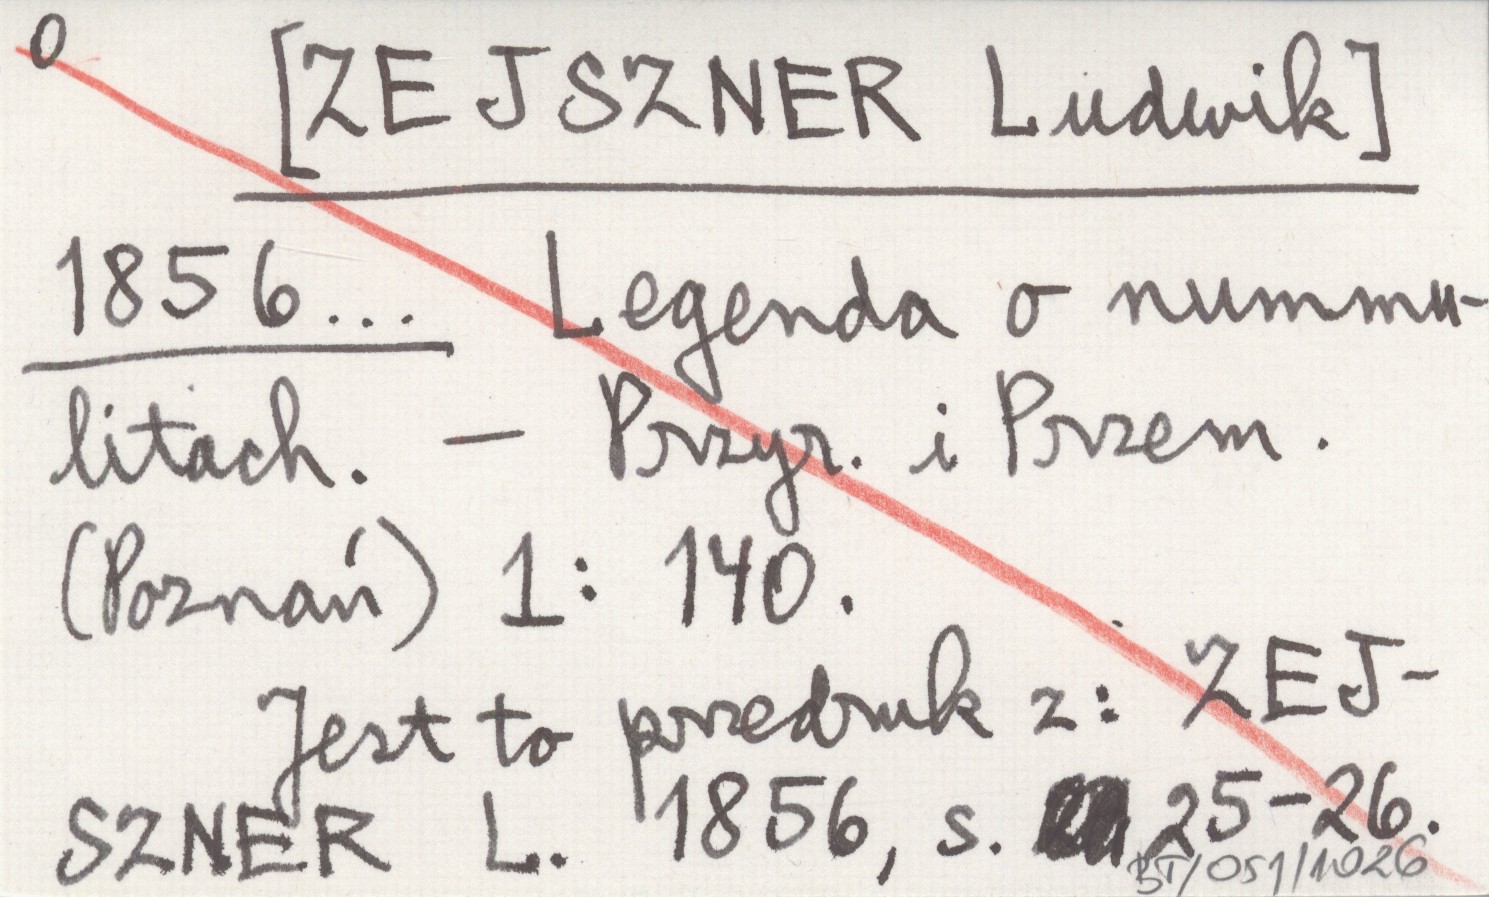 0
[ZEJSZNER Ludwik]
1856... Legenda o nummu-
litach. – Przyr. i Przem.
(Poznań) 1: 140.
Jest to przedruk z: ZEJ-
SZNER L. 1856, s. 25-26.
BT/051/1026